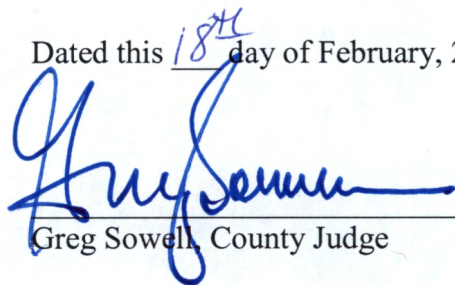 Dated this 18th day of February, 2
Greg Sowell
Greg Sowell, County Judge